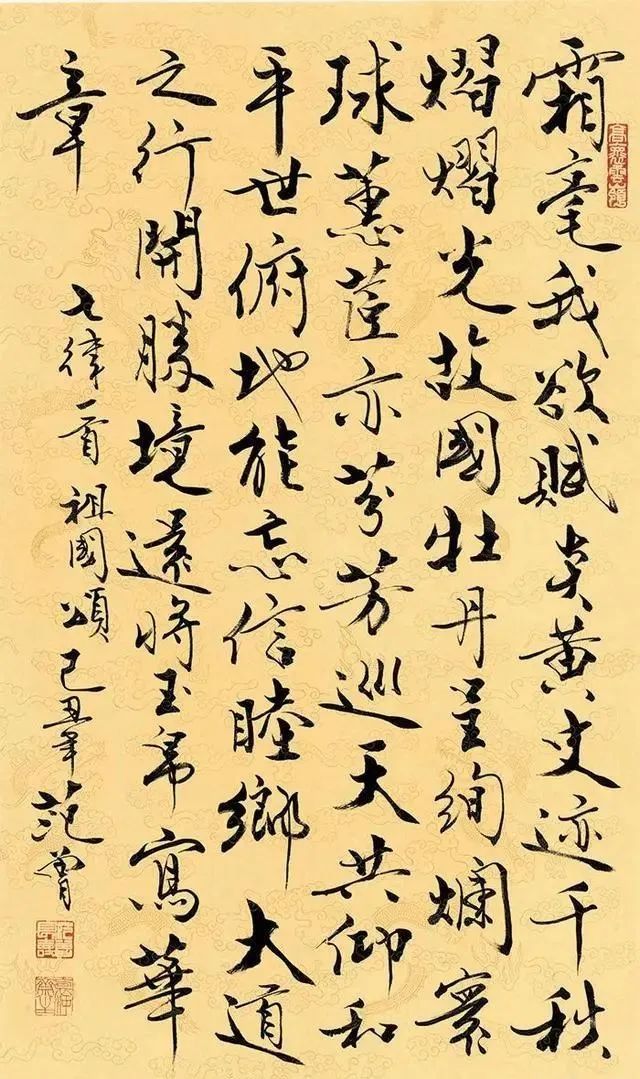 霜毫我欲赋炎黄史迹千秋
熠熠光故國牡丹呈绚爛寰
球蕙茝亦芬芳巡天共仰和
平世俯地能忘信睦鄉大道
之行開勝境還將玉帛寫華
章
七律一首祖國頌己丑年范曾